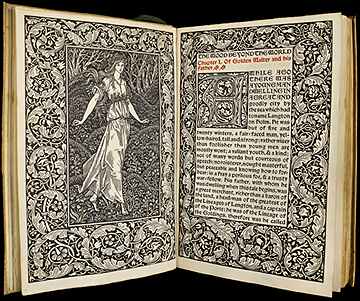 THE WOOD BEYOND THE WORLD
Chapter I. Of Golden Walter and his
Father.
WHILE AGO
THERE WAS
A YOUNG MAN
DWELLING IN
A GREAT AND
goodly city by
the sea which had
to name Langton
on Holm. He was
but of five and
twenty winters, a fair-faced man, yel-
low-haired, tall and strong; rather wiser
than foolisher than young men are
mostly wont; a valiant youth, & a kind;
not of many words but courteous of
speech; no roisterer, nought masterful,
but peaceable and knowing how to for-
bear; in a fray a perilous foe, & a trusty
war-fellow. His father, with whom he
was dwelling when this tale begins, was
a great merchant, richer than a baron of
the land, a head-man of the greatest of
the Lineages of Langton, and a captain
of the Porte; he was of the Lineage of
the Goldings, therefore was he called